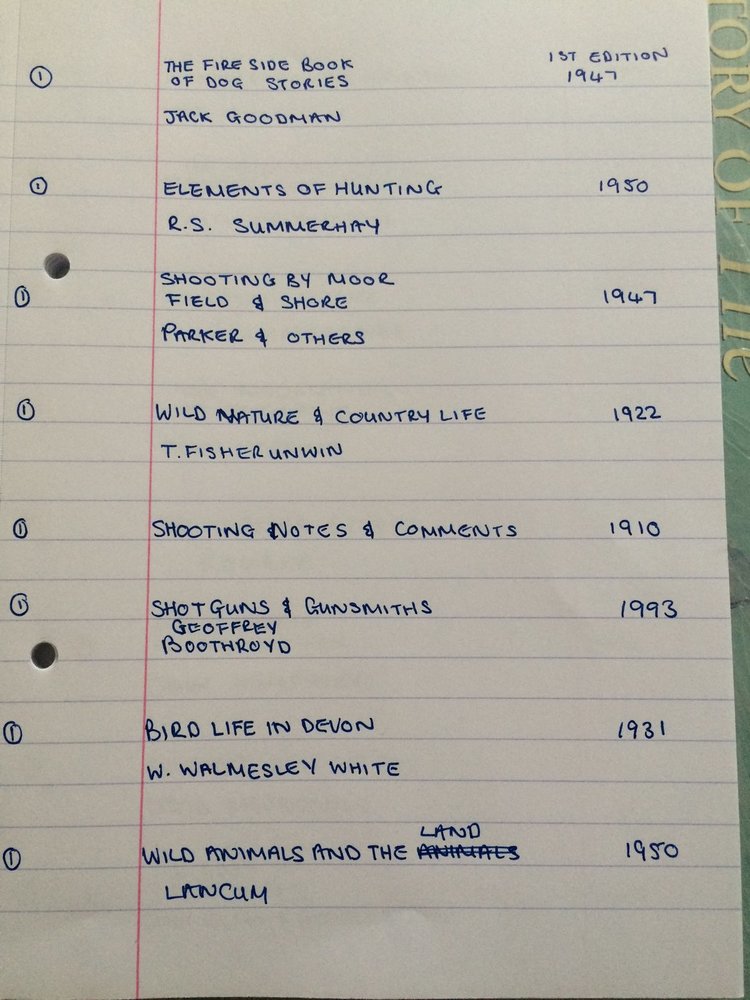 ① THE FIRE SIDE BOOK 1ST EDITION
OF DOG STORIES 1947
JACK GOODMAN
① ELEMENTS OF HUNTING 1950
R.S. SUMMERHAY
SHOOTING BY MOOR
① FIELD & SHORE 1947
PARKER & OTHERS
① WILD NATURE & COUNTRY LIFE 1922
T. FISHER UNWIN
① SHOOTING NOTES & COMMENTS 1910
① SHOTGUNS & GUNSMITHS 1993
GEOFFREY
BOOTHROYD
① BIRD LIFE IN DEVON 1931
W. WALMESLEY WHITE
LAND
① WILD ANIMALS AND THE ANIMALS 1950
LANCUM
TORY OF THE